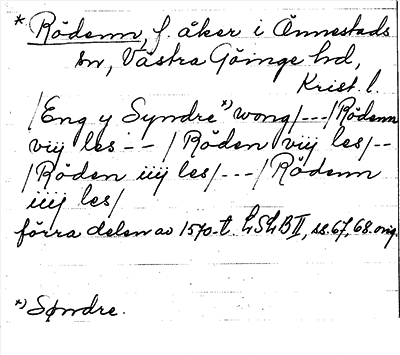 * Rödenn, f. åker i Önnestads
sn, Västra Göinge hd,
Krist. l.
/Eng y Syndre *) wong/---/Rödenn
viij les -- /Röden viij les/--
/Röden iiij les/---/Rödenn
iiij les/
förra delen av 1570-t. LSLB II, ss. 67, 68. orig.
*) Søndre.